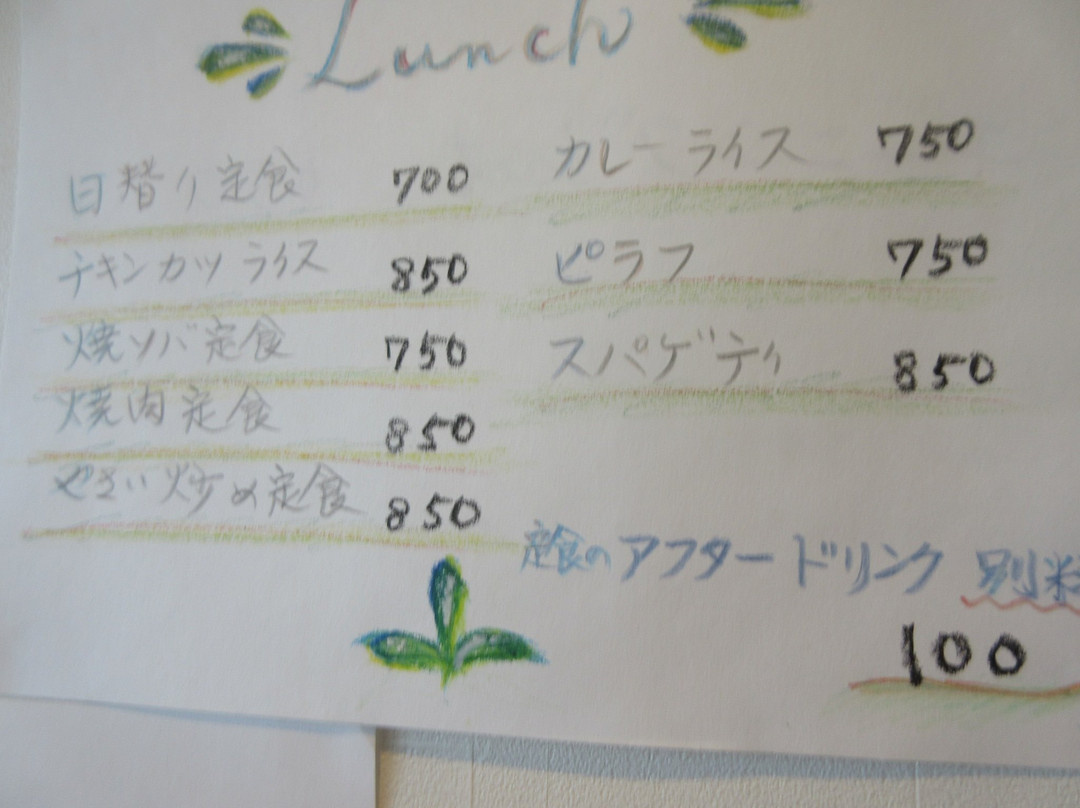 Lunch
日替り定食 700
チキンカツライス 850
焼ソバ定食 750
焼肉定食 850
やさい炒め定食 850
カレーライス 750
ピラフ 750
スパゲティ 850
定食のアフタードリンク 別料
100